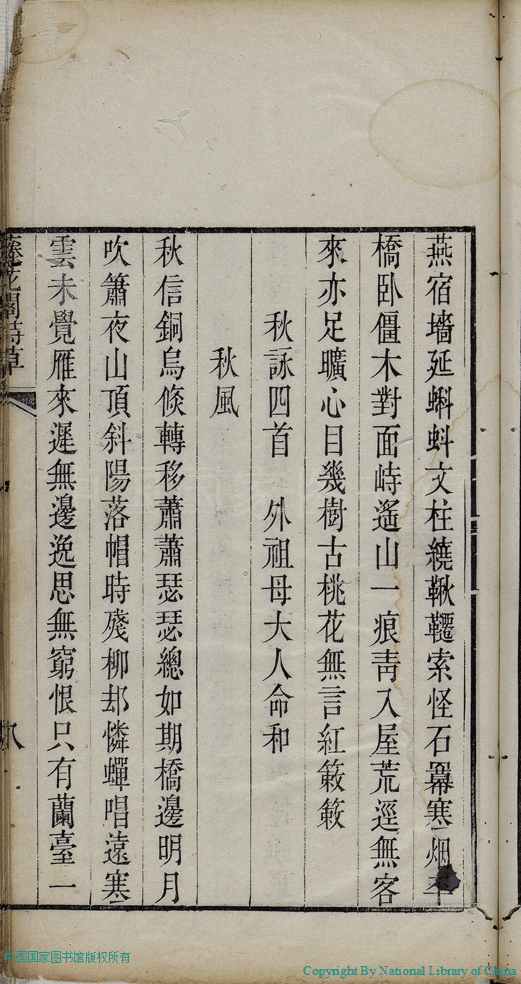 燕宿墻延蝌蚪文柱繞鞦韆索怪石羃寒烟平
橋臥僵木對面峙遙山一痕靑入屋荒逕無客
來亦足曠心目幾樹古桃花無言紅簌簌
秋詠四首　外祖母大人命和
秋風
秋信銅烏倐轉移蕭蕭瑟瑟總如期橋邊明月
吹簫夜山頂斜陽落帽時殘柳却憐蟬唱遠寒
雲未覺雁來遲無邊逸思無窮恨只有蘭臺一
藤花閣詩草
八
国国家图书馆版权所有
Copyright By National Library of China